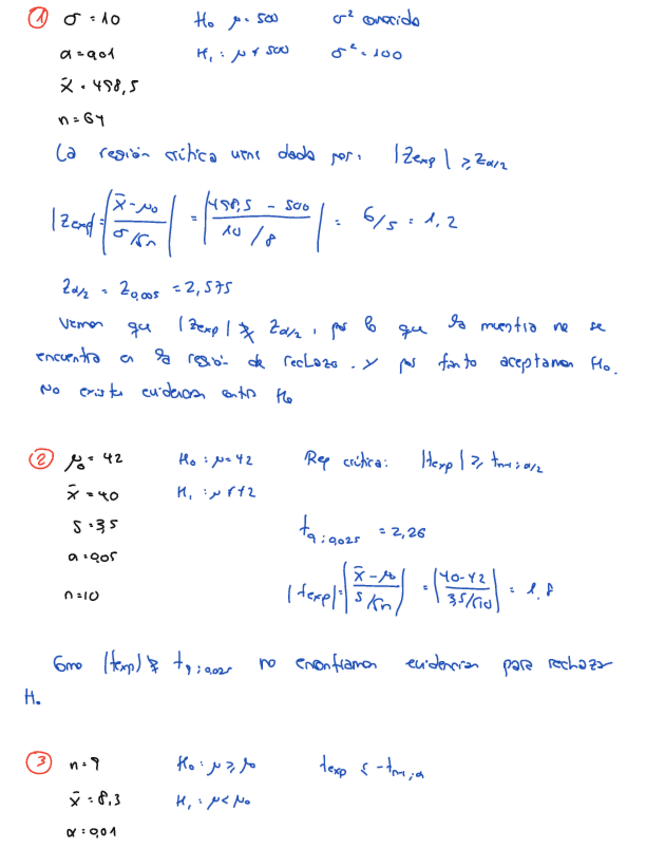 ① σ = 10 H₀ μ = 500 σ² conocida
α = 0,01 H₁ : μ ≠ 500 σ² = 100
x̄ = 498,5
n = 64
La región crítica viene dada por: |Zexp| ≥ Zα/2
|Zexp| = |(x̄ - μ₀)/(σ/√n)| = |(498,5 - 500)/(10/8)| = 6/5 = 1,2
Zα/2 = Z0,005 = 2,575
Vemos que |Zexp| ≱ Zα/2, por lo que la muestra no se
encuentra en la región de rechazo. Y por tanto aceptamos H₀.
No existe evidencia contra H₀
② μ₀ = 42 H₀ : μ = 42 Reg crítica: |texp| ≥ tn-1;α/2
x̄ = 40 H₁ : μ ≠ 42
S = 3,5 t9;0,025 = 2,26
α = 0,05
n = 10 |texp| = |(x̄ - μ₀)/(S/√n)| = |(40 - 42)/(3,5/√10)| = 1,8
Como |texp| ≱ t9;0,025 no encontramos evidencias para rechazar
H₀
③ n = 9 H₀ : μ ≥ μ₀ texp ≤ -tn-1;α
x̄ = 8,3 H₁ : μ < μ₀
α = 0,01